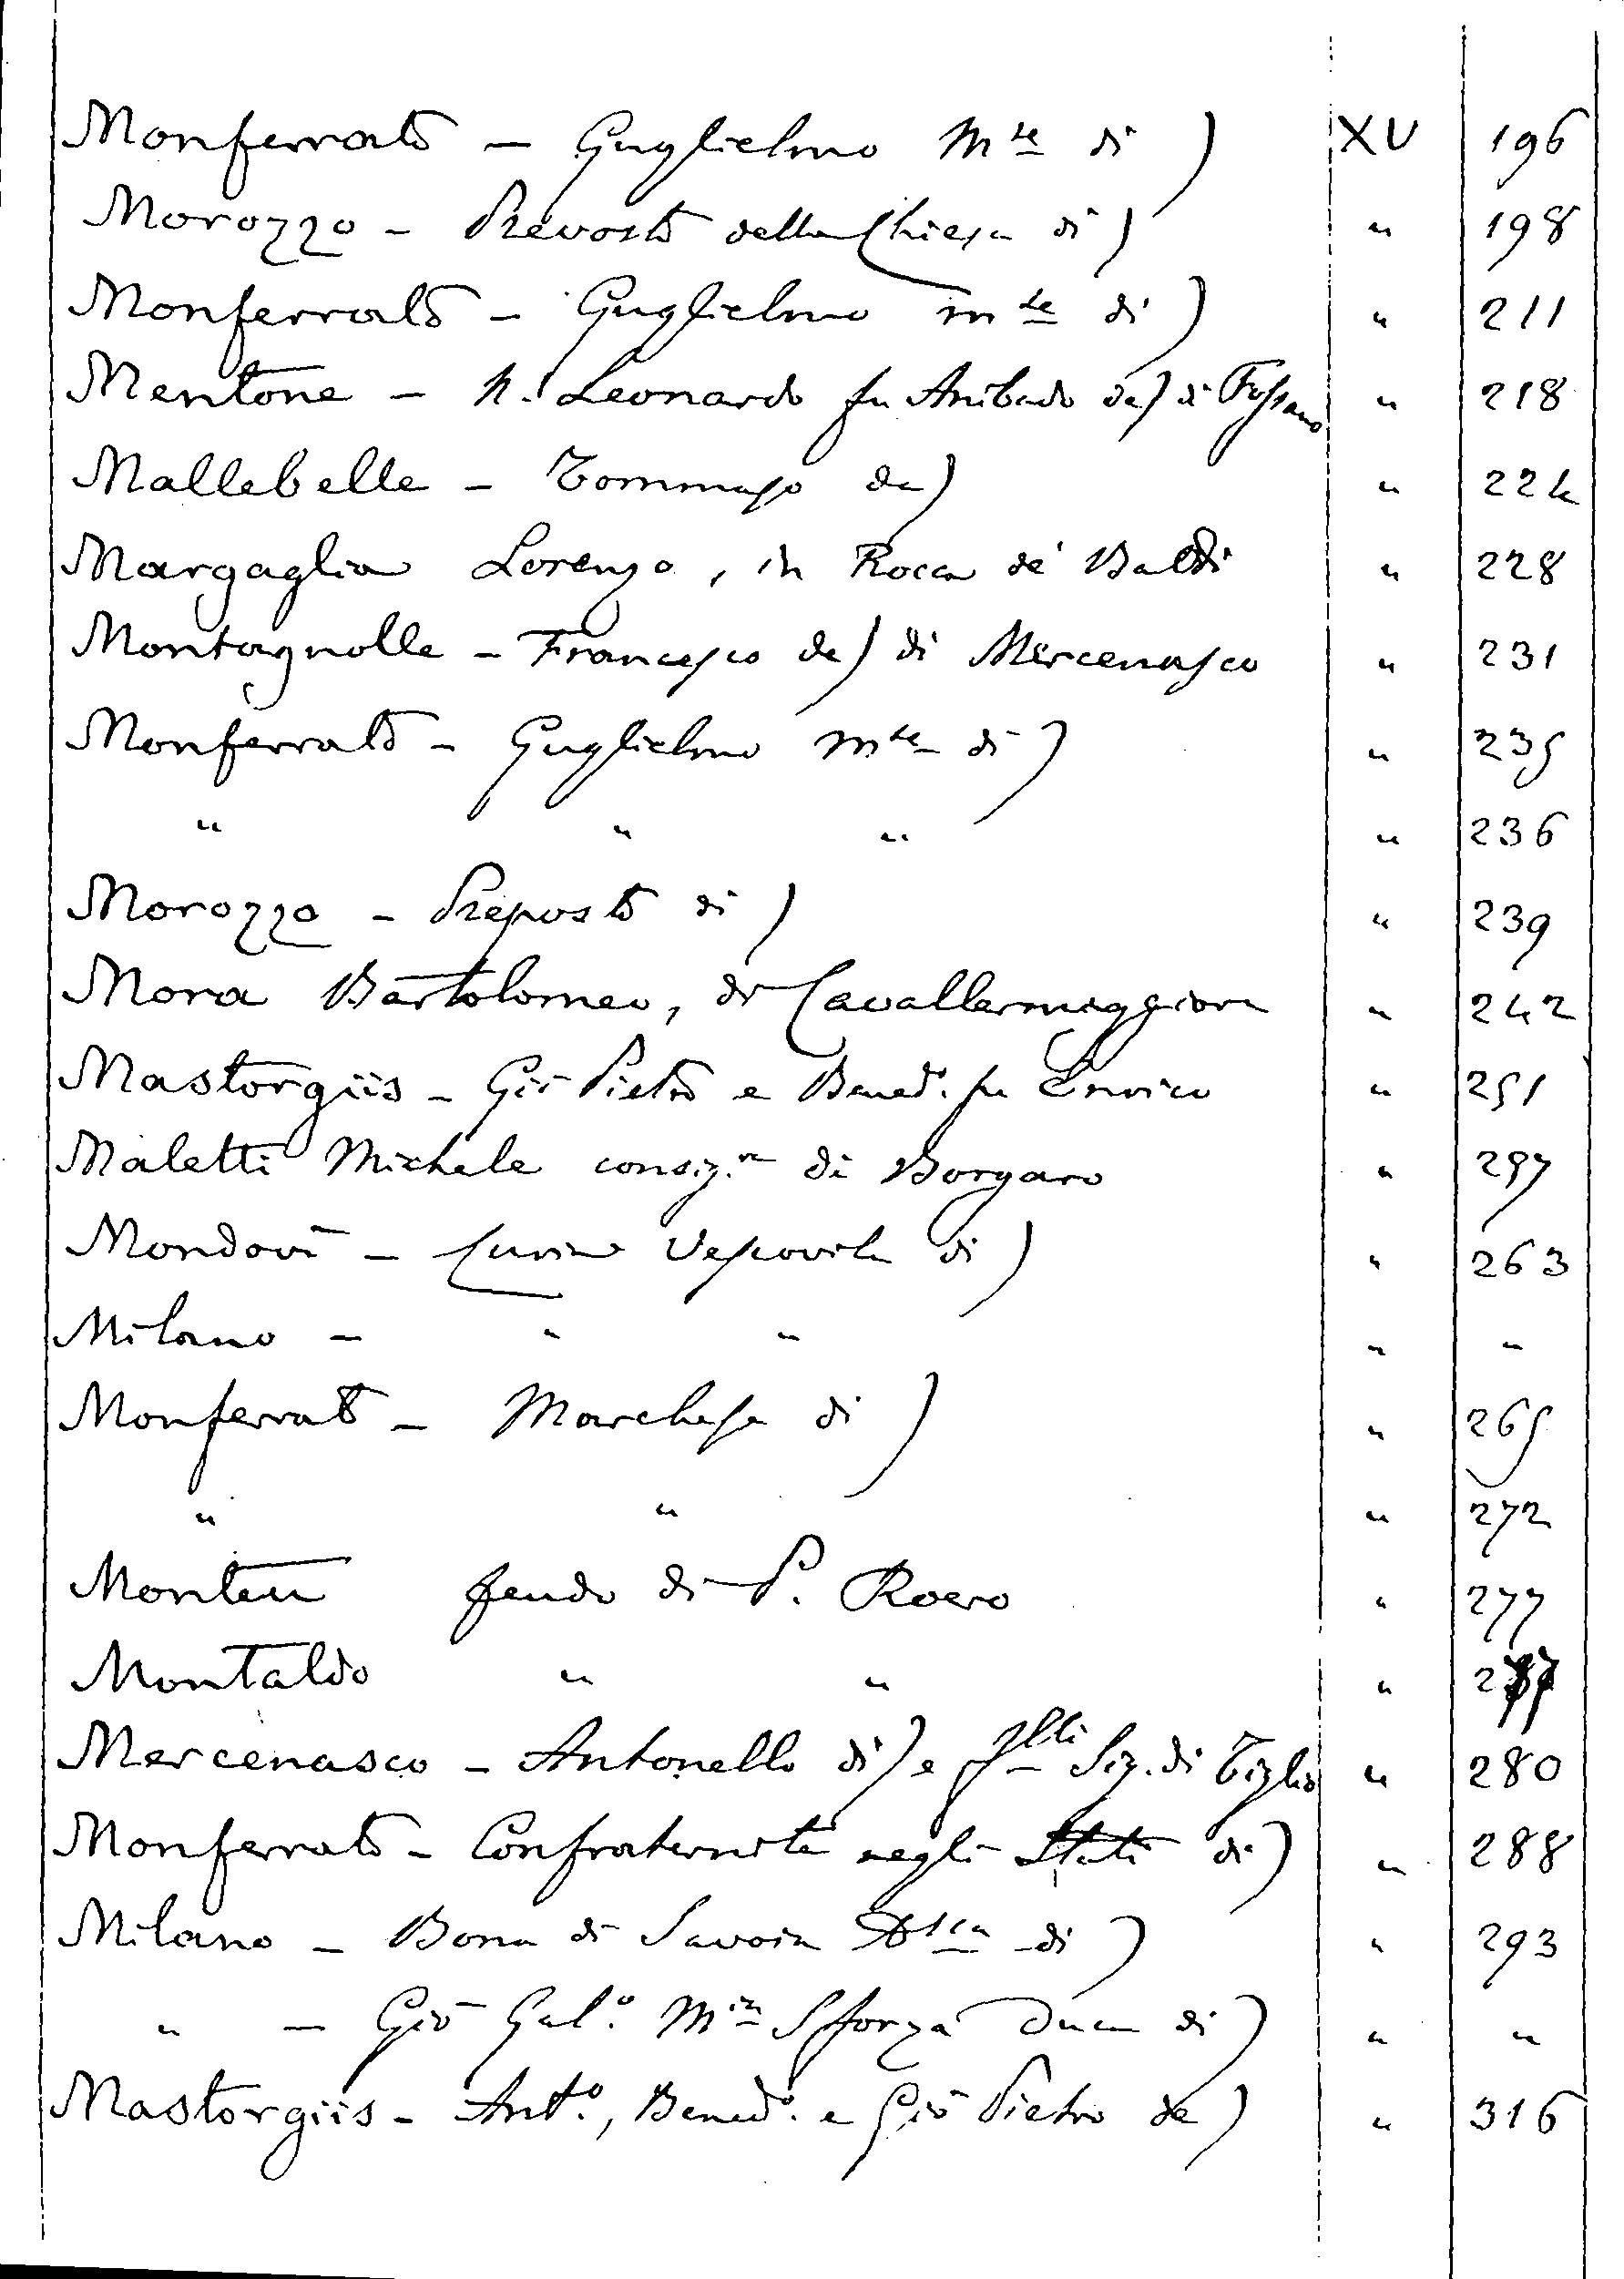 Monferrato – Guglielmo Mse di) XV 196
Morozzo – Prevosto della Chiesa di) " 198
Monferrato – Guglielmo mse di) " 211
Mentone – N. Leonardo fu Anibado de) di Fossano " 218
Mallebelle – Tommaso de) " 224
Margaglia Lorenzo, in Rocca de' Baldi " 228
Montagnolle – Francesco de) di Mercenasco " 231
Monferrato – Guglielmo Mse di) " 235
" " " " 236
Morozzo – Preposto di) " 239
Mora Bartolomeo, di Cavallermaggiore " 242
Mastorgiis – Gio Pietro e Bened.o fu Enrico " 251
Maletti Michele consig.re di Borgaro " 257
Mondovì – Curia Vescovile di) " 263
Milano – " " " "
Monferrato – Marchese di) " 265
" " " 272
Monteu feudo di P. Roero " 277
Montaldo " " " 277
Mercenasco – Antonello di) e flli Sig. di Tiglio " 280
Monferrato – Confraternite negli Stati di) " 288
Milano – Bona di Savoia Dssa di) " 293
" – Gio Gal.o Mia Sforza Duca di) " "
Mastorgiis – Ant.o, Bened.o e Gio Pietro de) " 316